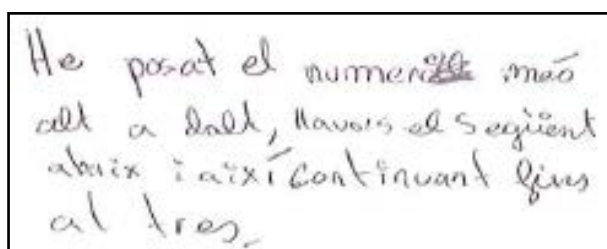 He posat el numero més
alt a dalt, llavors el següent
abaix i així continuant fins
al tres.